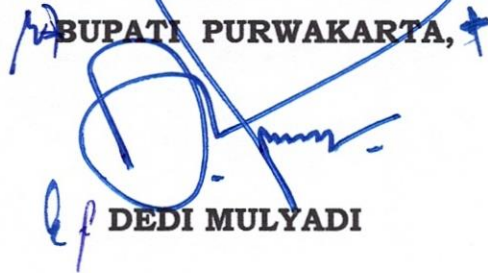 BUPATI PURWAKARTA,
DEDI MULYADI